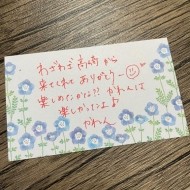 わざわざ高崎から
来てくれて ありがとう〜
楽しめたかな?? かれんは
楽しかったよ♪
かれん